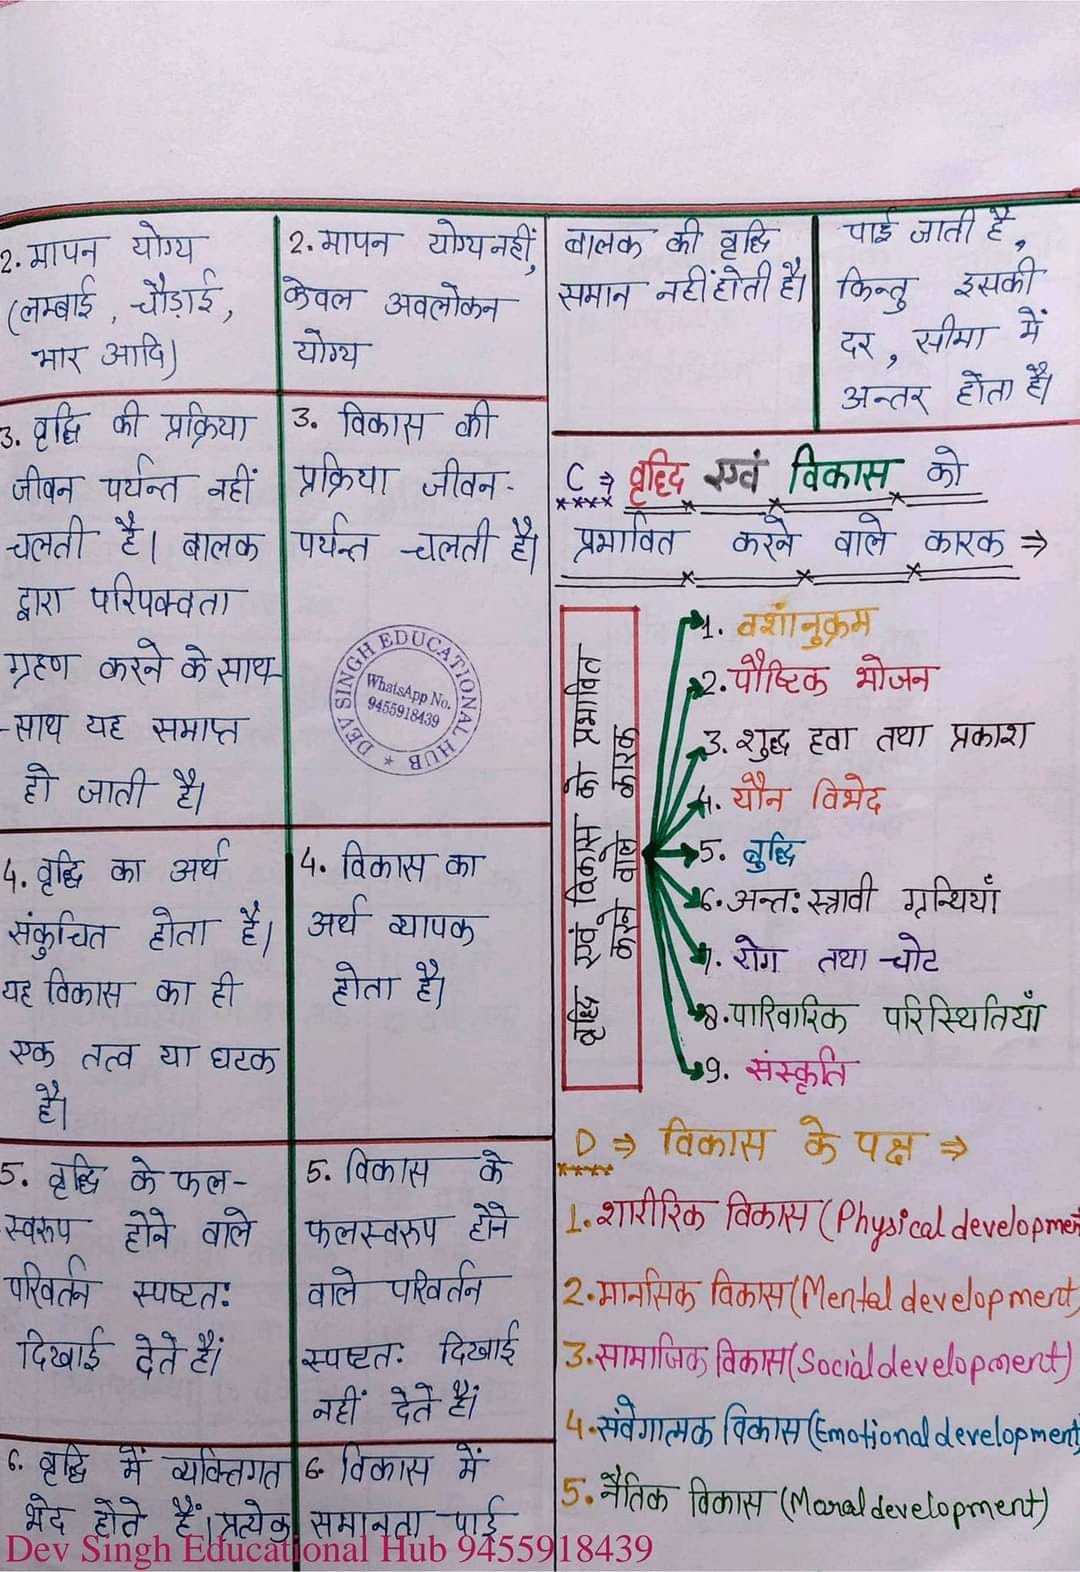 2. मापन योग्य
(लम्बाई, चौड़ाई,
भार आदि)
2. मापन योग्य नहीं,
केवल अवलोकन
योग्य
3. वृद्धि की प्रक्रिया
जीवन पर्यन्त नहीं
चलती है। बालक
द्वारा परिपक्वता
ग्रहण करने के साथ-
-साथ यह समाप्त
हो जाती है।
3. विकास की
प्रक्रिया जीवन-
पर्यन्त चलती है।
4. वृद्धि का अर्थ
संकुचित होता है।
यह विकास का ही
एक तत्व या घटक
है।
4. विकास का
अर्थ व्यापक
होता है।
5. वृद्धि के फल-
स्वरूप होने वाले
परिवर्तन स्पष्टत:
दिखाई देते हैं।
5. विकास के
फलस्वरूप होने
वाले परिवर्तन
स्पष्टत: दिखाई
नहीं देते हैं।
6. वृद्धि में व्यक्तिगत
भेद होते हैं। प्रत्येक
6. विकास में
समानता पाई
बालक की वृद्धि
समान नहीं होती है।
पाई जाती है,
किन्तु इसकी
दर, सीमा में
अन्तर होता है।
C ⇒ वृद्धि एवं विकास को
प्रभावित करने वाले कारक ⇒
वृद्धि एवं विकास को प्रभावित
करने वाले कारक
1. वशांनुक्रम
2. पौष्टिक भोजन
3. शुद्ध हवा तथा प्रकाश
4. यौन विभेद
5. बुद्धि
6. अन्त: स्त्रावी ग्रन्थियाँ
7. रोग तथा चोट
8. पारिवारिक परिस्थितियाँ
9. संस्कृति
D ⇒ विकास के पक्ष ⇒
1. शारीरिक विकास (Physical developmen
2. मानसिक विकास (Mental development)
3. सामाजिक विकास (Social development)
4. संवेगात्मक विकास (Emotional development)
5. नैतिक विकास (Moral development)
DEV SINGH EDUCATIONAL HUB
WhatsApp No.
9455918439
Dev Singh Educational Hub 9455918439